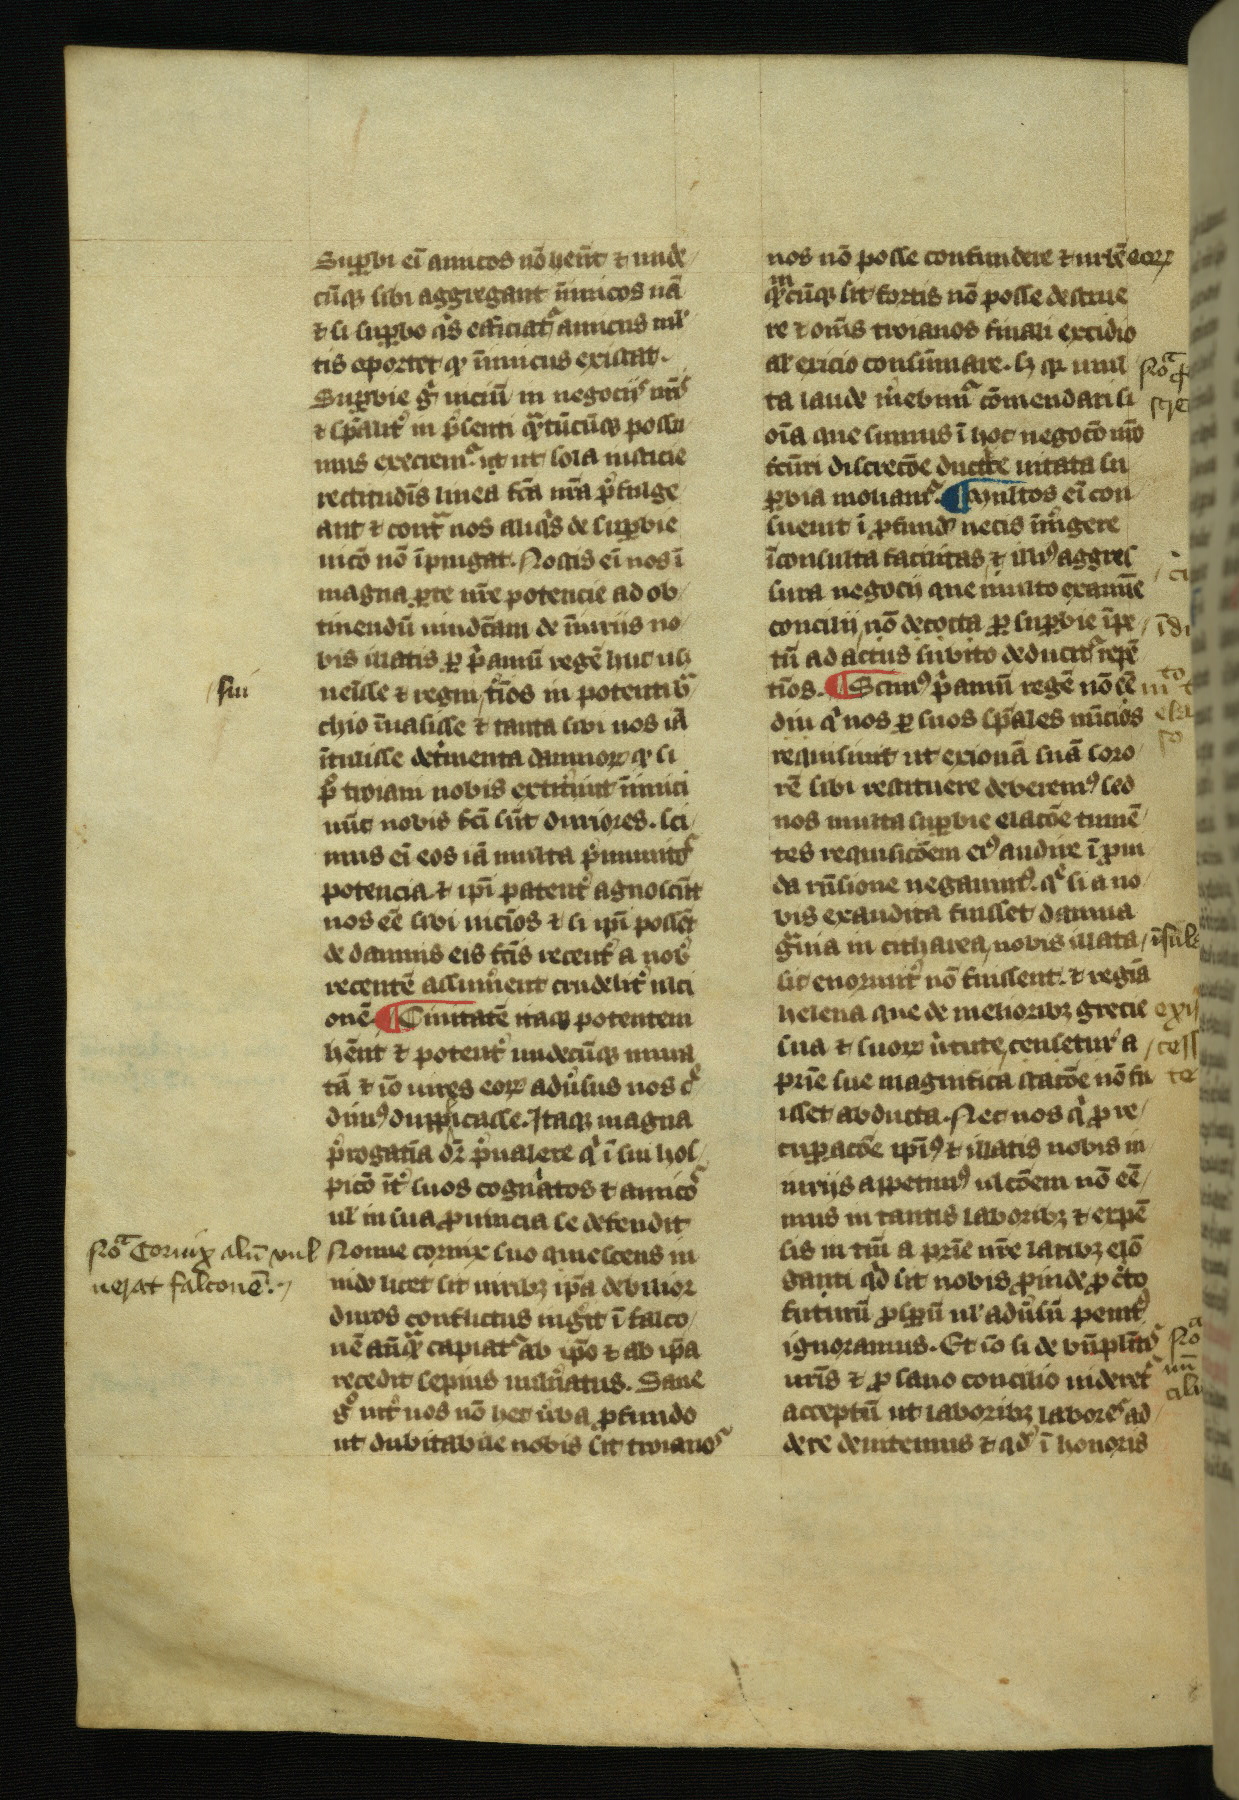 Supbi ei amicos nō hēnt ⁊ unde
cūqꝫ sibi aggregant inimicos nā
⁊ si supbo qͥs efficiatr amicus ml
tis oportet qꝫ inimicus existat.
Supbie gͦ uiciū in negociis nris
⁊ spālitͥ in pͥsenti qͣtūcūqꝫ possu
mus execremꝰ ut ut sola iusticie
rectitudīs linea fca nrā pͥfulge
ant ⁊ contͣ nos aliqͥs de supbie
uicō nō īpingat. Nostis eī nos ī
magna ꝑte nrē potencie ad ob
tinendū uindcām de iniuriis no
bis illatis ꝑ pͥamū regē huc uē
neisse ⁊ regni fīos in potenti bͣ
sui
chio inuasisse ⁊ tanta sibi nos iā
ītulisse detͥmenta dannoꝝ qꝫ si
pͥ troiam nobis extitͥunt inimici
nūc nobis fci sūt duriores. Sci
mus eī eos iā multa pͥmuntoͣ
potencia ⁊ ipī patentͥ agnoscūt
nos eē sibi uicīos ⁊ si ipī possēt
de damnis eis fcis recentͥ a nobͥ
recentē assumͥent crudelitͥ ulci
onē. Ciuitatē itaqꝫ potentem
hēnt ⁊ potentͥ undecūqꝫ mura
tā ⁊ iō uires eoꝝ adūsus nos cͥ
dimꝰ duplicasse. Itaqꝫ magna
pͥrogatīa dr̄ pͥualere qͥ ī sui hos
picō itͥ suos cognatos ⁊ amicoͣ
ul in sua ꝓuincia se defendit
Nō Cornix aliū vul
Nonne cornix suo quiescens in
nerat falconē.
nido licet sit uiribꝫ ipā debilior
duros conflictus ingͥit ī falco
nē anqͣ capiatr ab ipō ⁊ ab ipā
recedit sepius uulnatus. Sane
gͦ intͥ nos nō hec ūba ꝓfundo
ut dubitabile nobis sit troianoͣ
nos nō posse confundere ⁊ urbē eoꝝ
qͣcūqꝫ sit fortis nō posse destrue
re ⁊ omīs troianos finali excidio
al exicio consummare. sꝫ qꝛ mul
Nō
ta laude mͥebimꝰ cōmendari si
oīa que sumus ī hoc negocō nrō
fcūri discrecōe ducite uitata su
ꝑbia moliantͬ. Multos eī con
sueuit ī ꝓfundͦ necis īmͥgere
īconsulta facilitas ⁊ illiꝰ aggres
sura negocii que multo examīe
concilii nō decocta ꝑ supbie īpe
tū ad actus subito deducitͬ repē
tīos. Scimꝰ pͥamū regē nō eē
diu qͥ nos ꝑ suos spāles nūcios
requisiuit ut exionā suā soro
rē sibi restituere deberemꝰ sed
nos multa supbie elacōe tumē
tes requisicōem eiꝰ audire ī ꝓui
da rūsione negauimꝰ. qͥ si a no
bis exaudita fuisset damna
gͣuia in citharea nobis illata
sic enormitͥ nō fuissent. ⁊ regīa
helena que de melioribꝫ grecie
sua ⁊ suoꝝ ūtute censetur a
prīe sue magnifica stacōe nō fu
isset abducta. Nec nos qͥ ꝓ re
cupacōe ipīꝰ ⁊ illatis nobis in
iuriis appetimꝰ ulcōem nō eē
mus in tantis laboribꝫ ⁊ expē
sis in tm̄ a prīe nrē laribꝫ elō
gati qͥd sit nobis ꝓinde ꝓ cto
futurū ꝓsperū ul adūsū penitꝰ
ignoramus. Et iō si de bn̄plitoͬ
uris ⁊ ꝓ sano concilio uideretͬ
acceptū ut laboribꝫ labores ad
dere deuitemus ⁊ qd ī honoris